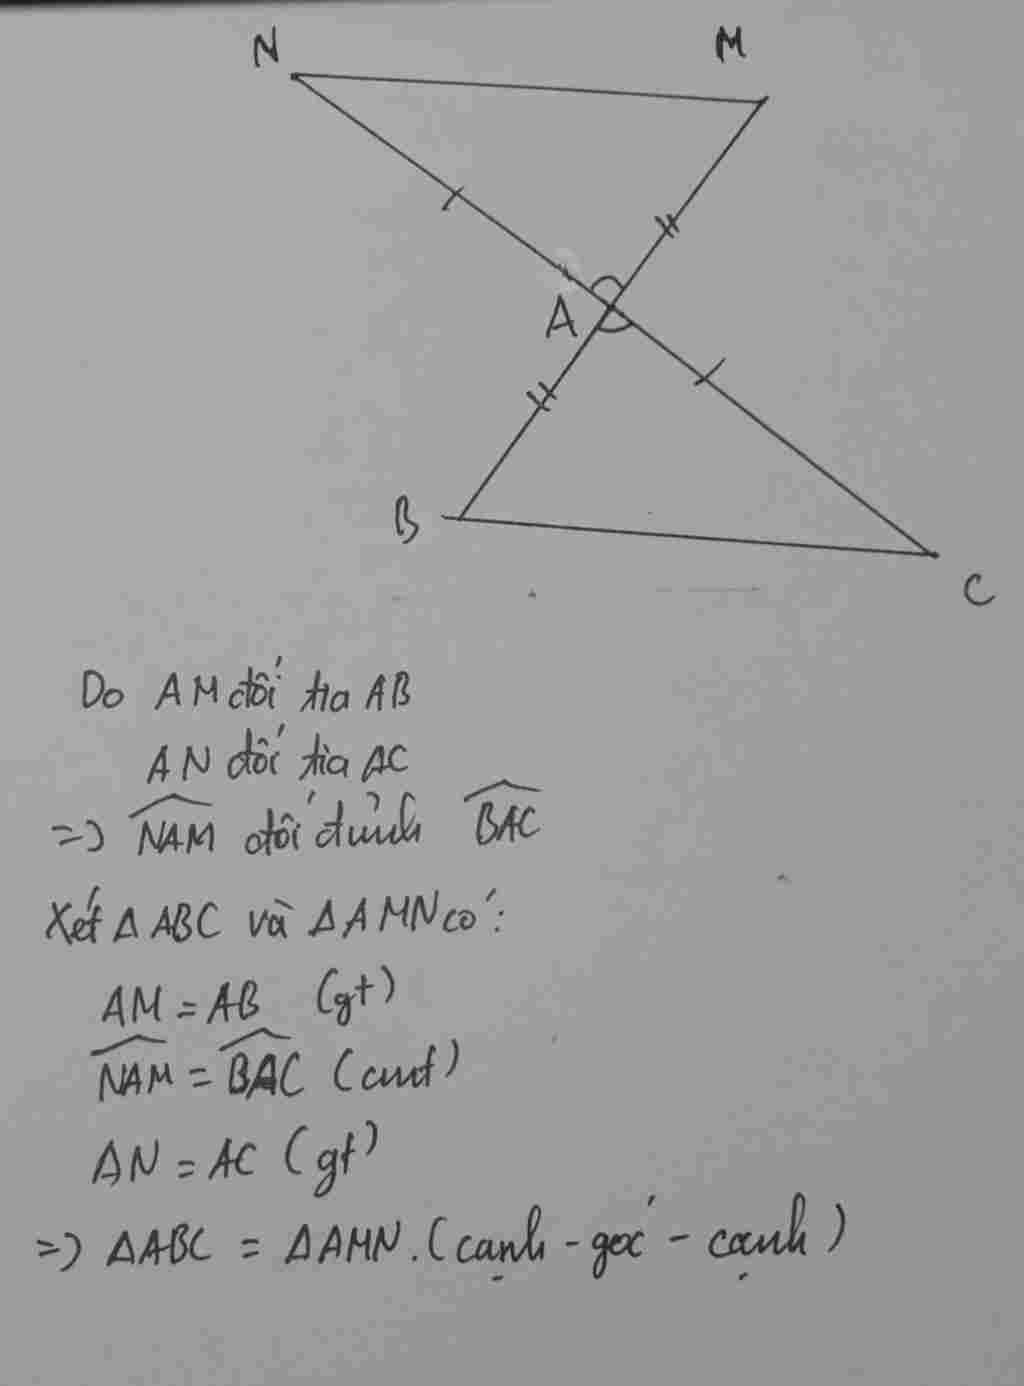 N M
A
B
C
Do AM đối tia AB
AN đối tia AC
=> \widehat{NAM} đối đỉnh \widehat{BAC}
Xét Δ ABC và Δ AMN có:
AM = AB (gt)
\widehat{NAM} = \widehat{BAC} (cmt)
AN = AC (gt)
=> ΔABC = ΔAMN. (cạnh - góc - cạnh)